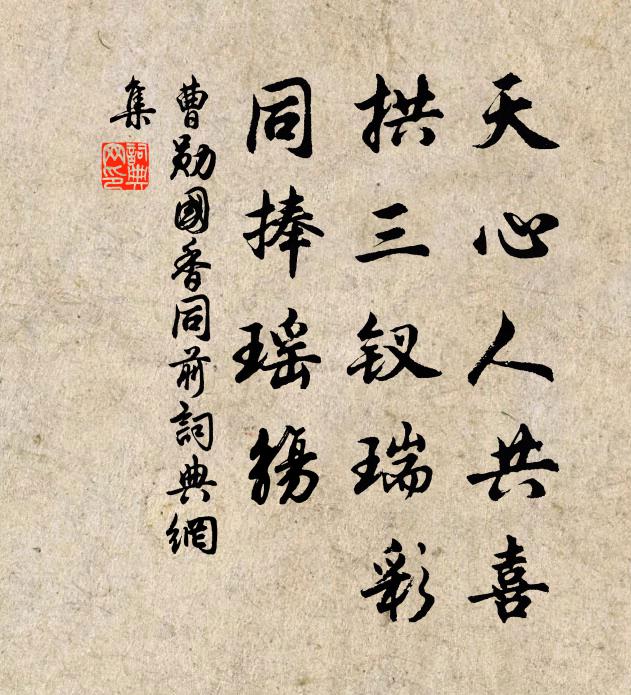 天心人共喜
拱三钗瑞彩
同捧瑶觞
曹勋國香同前詞典網
集
詞典
网印